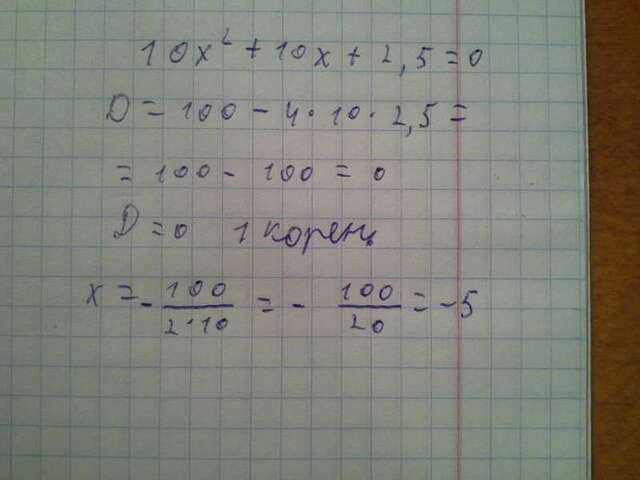 10x² + 10x + 2,5 = 0
D = 100 - 4 · 10 · 2,5 =
= 100 - 100 = 0
D = 0 1 корень
x = - 100/2·10 = - 100/20 = -5